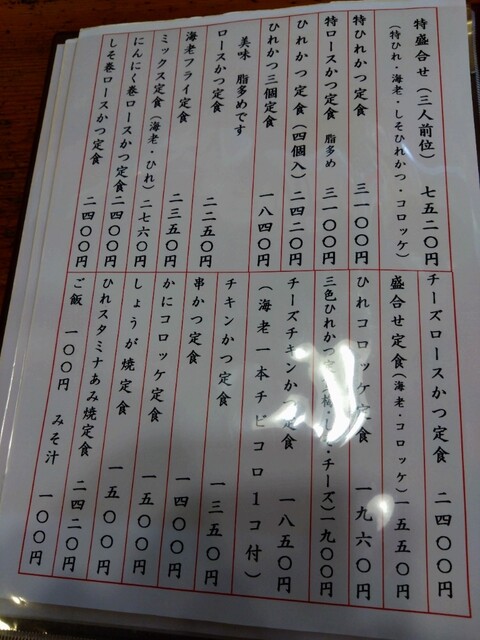 特盛合せ（三人前位）七五二〇円
（特ひれ・海老・しそひれかつ・コロッケ）
特ひれかつ定食 三一〇〇円
特ロースかつ定食 脂多め 三一〇〇円
ひれかつ定食（四個入）二四二〇円
ひれかつ三個定食 一八四〇円
美味 脂多めです
ロースかつ定食 二二五〇円
海老フライ定食 二三五〇円
ミックス定食（海老・ひれ）二七六〇円
にんにく巻ロースかつ定食 二四〇〇円
しそ巻ロースかつ定食 二四〇〇円
チーズロースかつ定食 二四〇〇円
盛合せ定食（海老・コロッケ）一五五〇円
ひれコロッケ定食 一九六〇円
三色ひれかつ定 しそ・チーズ）一九〇〇円
チーズチキンかつ定食 一八五〇円
（海老一本チビコロ1コ付）
チキンかつ定食 一三五〇円
串かつ定食 一四〇〇円
かにコロッケ定食 一五〇〇円
しょうが焼定食 一五〇〇円
ひれスタミナあみ焼定食 二四二〇円
ご飯 一〇〇円 みそ汁 一〇〇円